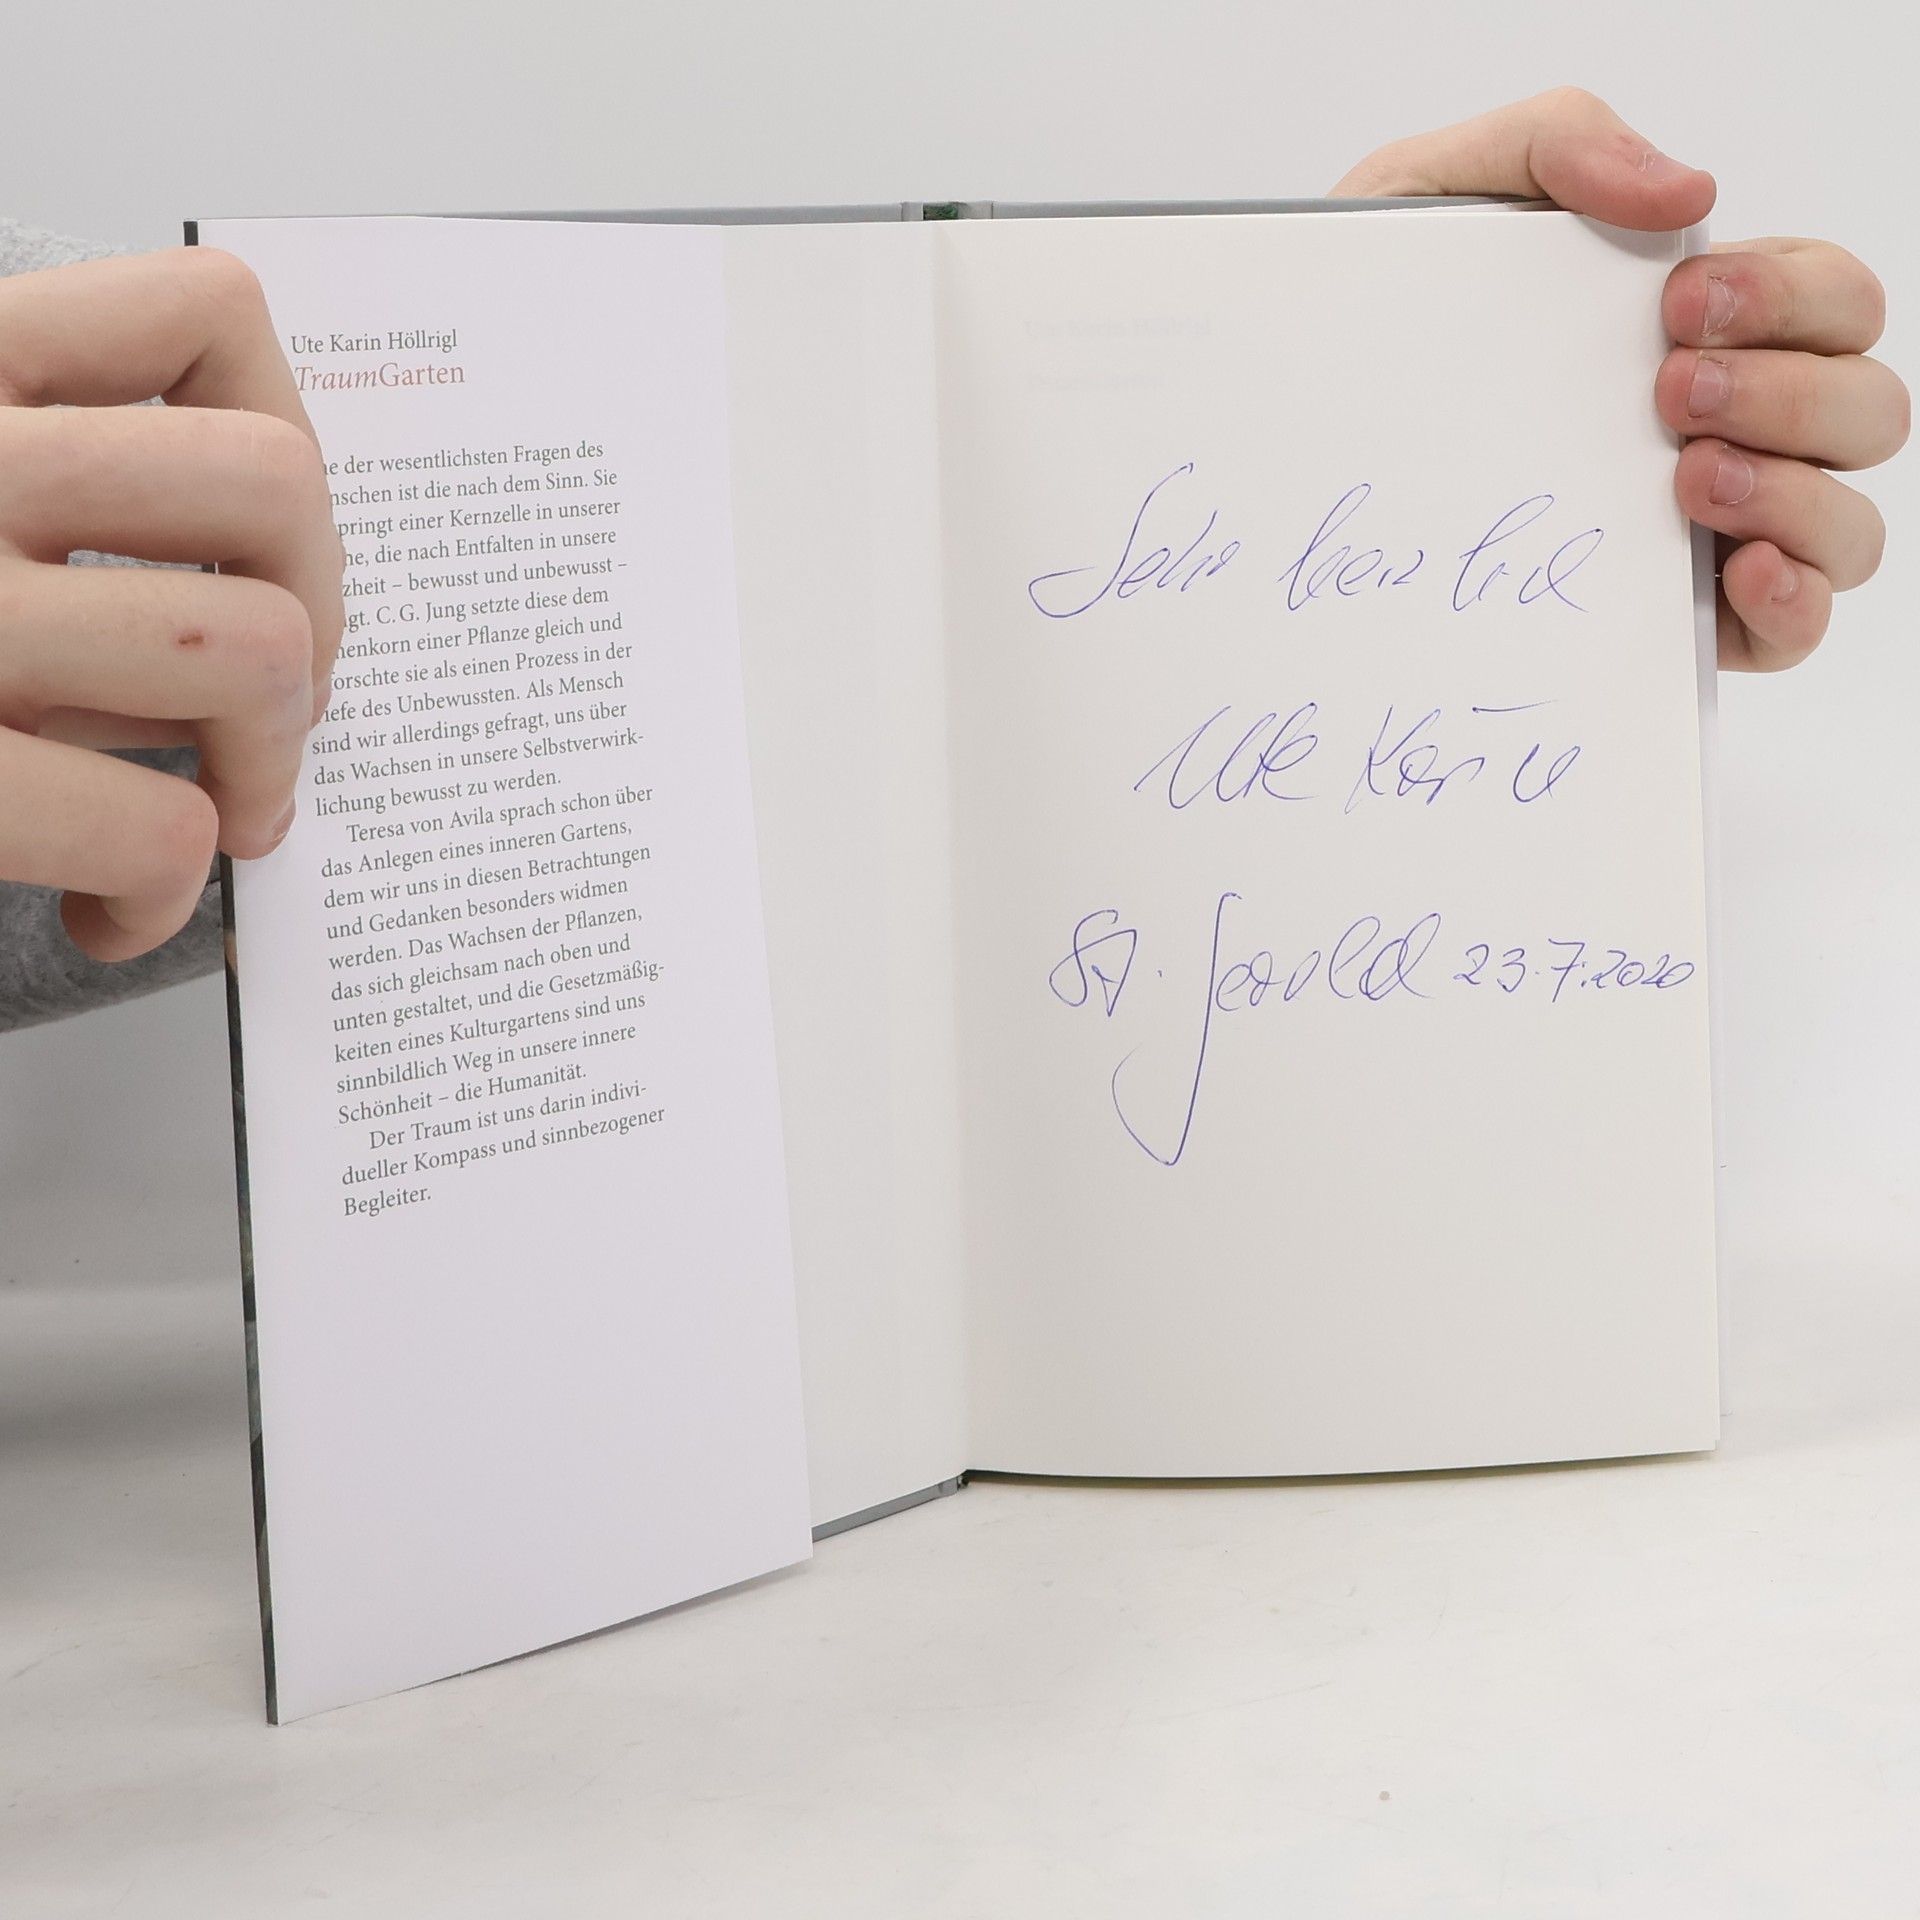 Ute Karin Höllrigl
TraumGarten
der wesentlichsten Fragen des
nschen ist die nach dem Sinn. Sie
pringt einer Kernzelle in unserer
he, die nach Entfalten in unsere
zheit – bewusst und unbewusst –
gt. C. G. Jung setzte diese dem
menkorn einer Pflanze gleich und
forschte sie als einen Prozess in der
iefe des Unbewussten. Als Mensch
sind wir allerdings gefragt, uns über
das Wachsen in unsere Selbstverwirk-
lichung bewusst zu werden.
Teresa von Avila sprach schon über
das Anlegen eines inneren Gartens,
dem wir uns in diesen Betrachtungen
und Gedanken besonders widmen
werden. Das Wachsen der Pflanzen,
das sich gleichsam nach oben und
unten gestaltet, und die Gesetzmäßig-
keiten eines Kulturgartens sind uns
sinnbildlich Weg in unsere innere
Schönheit – die Humanität.
Der Traum ist uns darin indivi-
dueller Kompass und sinnbezogener
Begleiter.
Sehr herzlich
Ute Karin
St. Gerold 23.7.2020